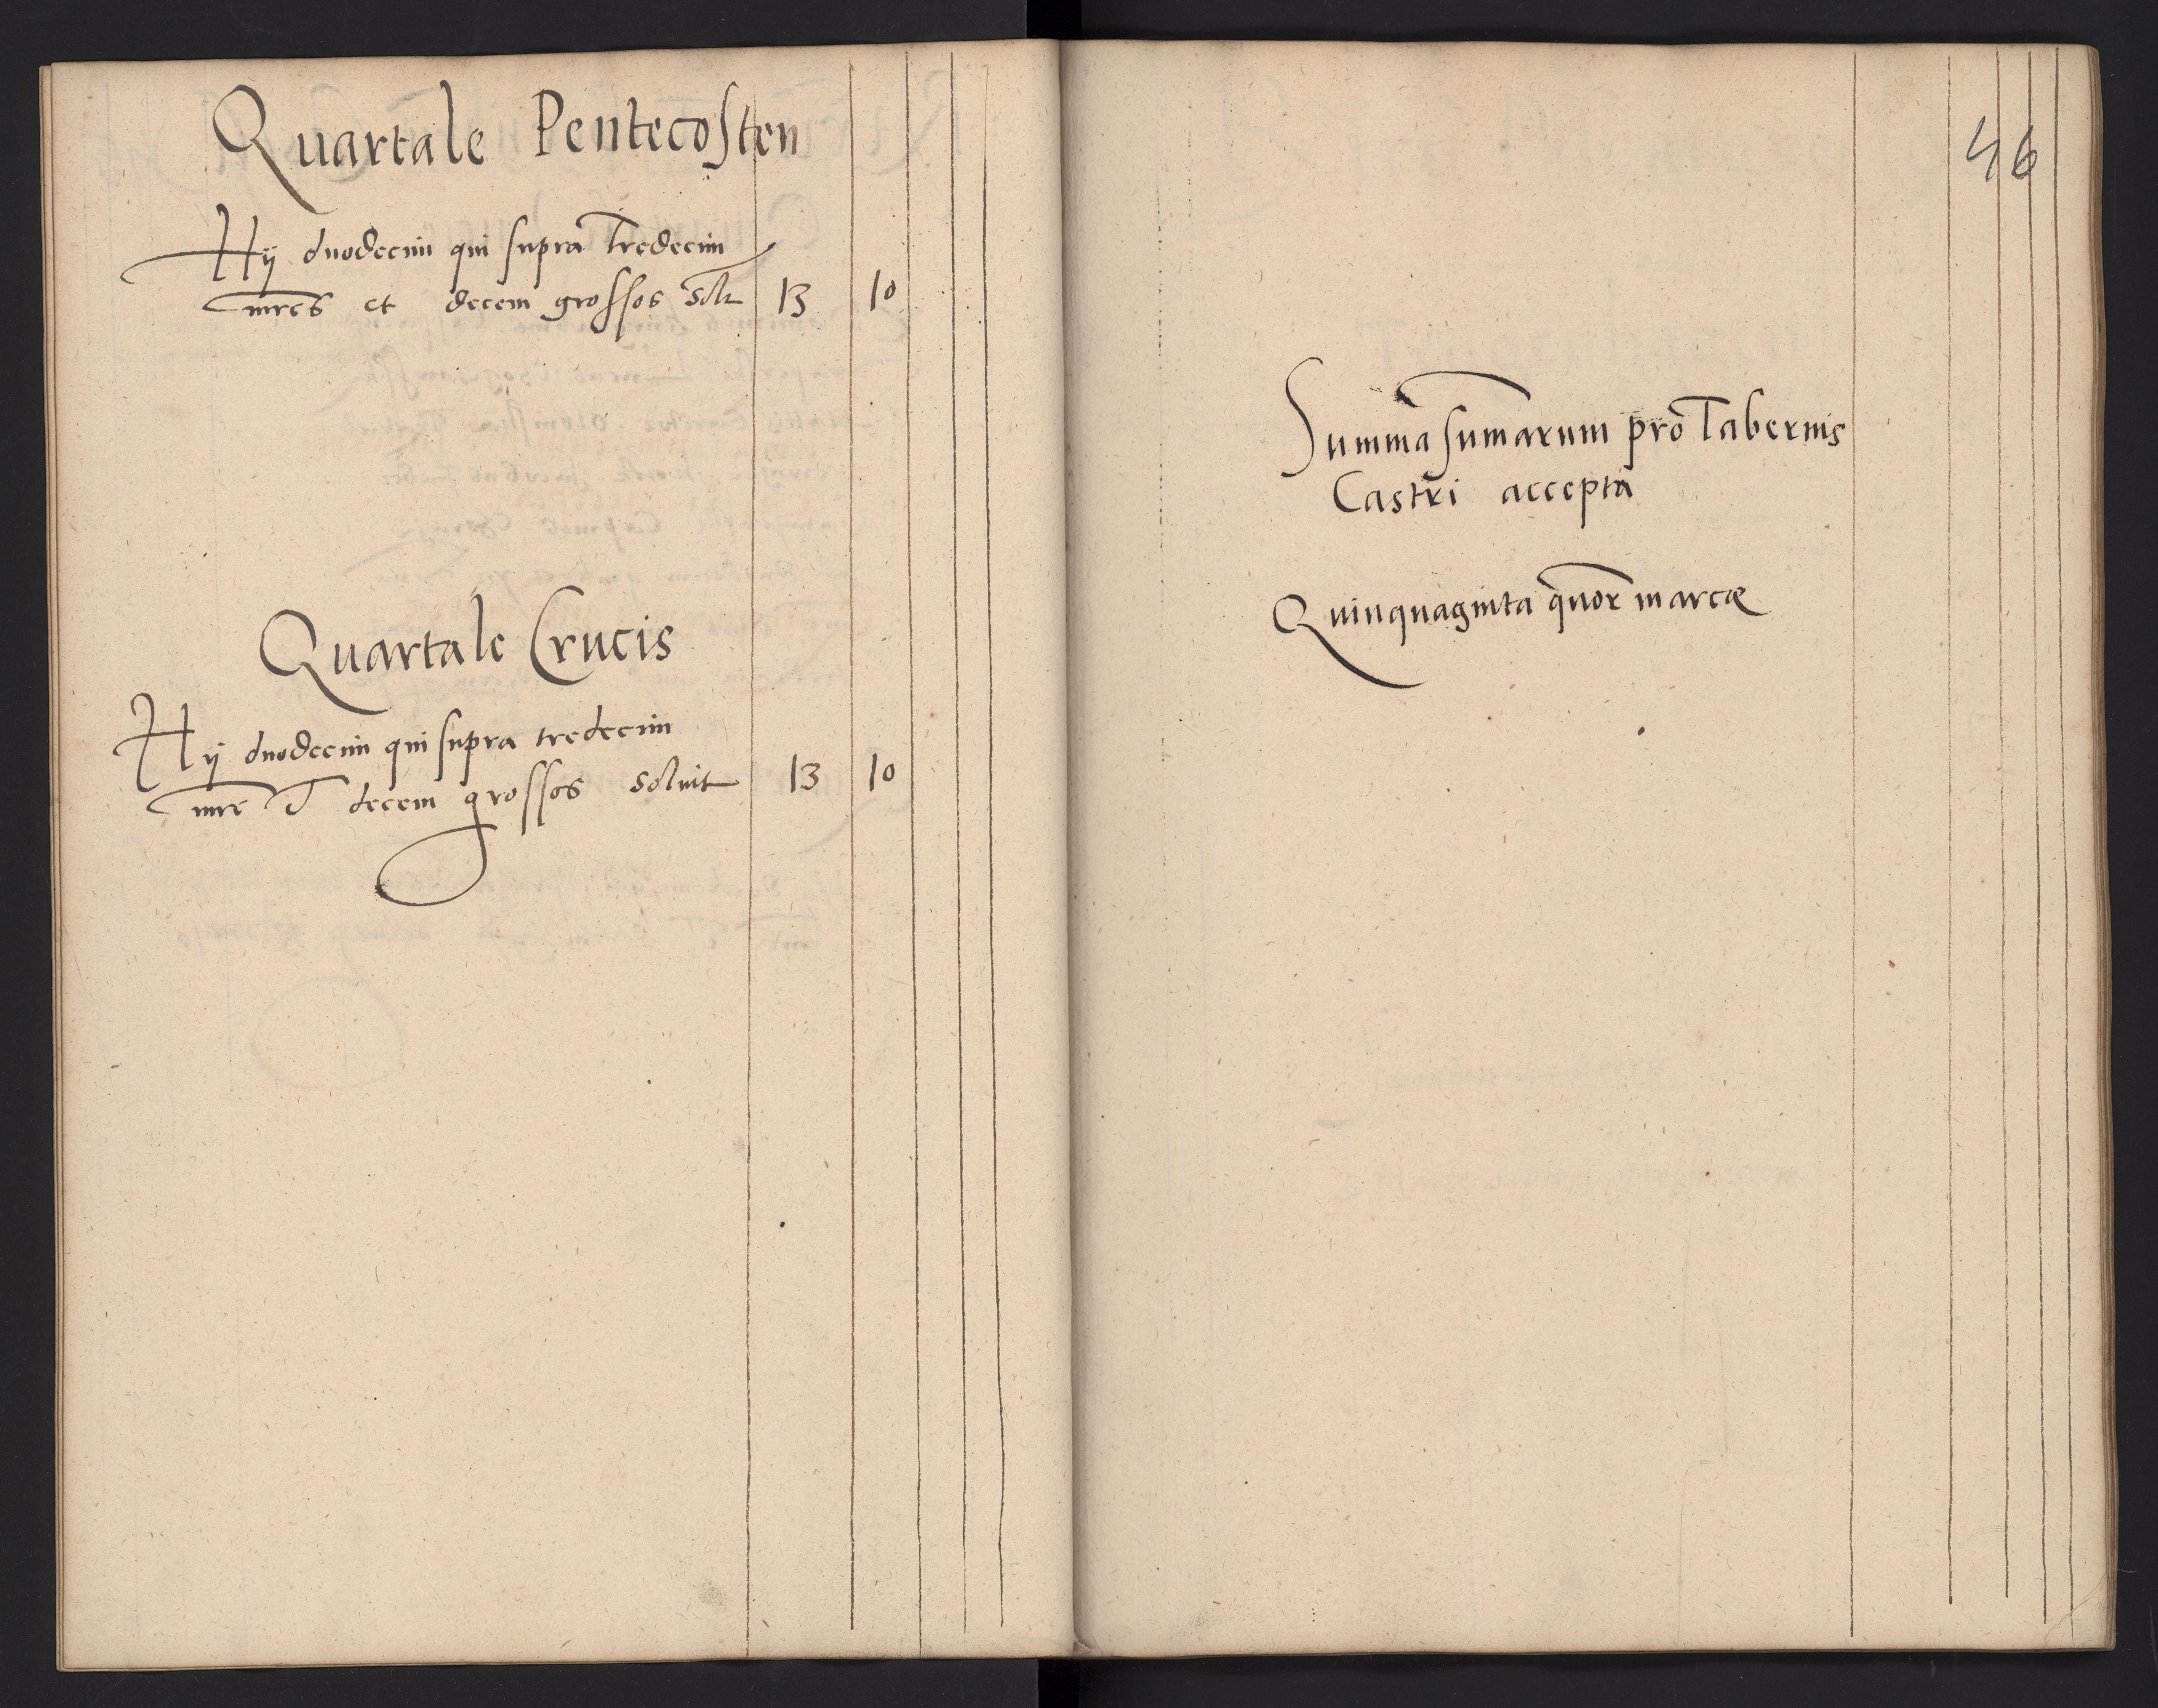 Quartale Pentecosten
Hij duodecim qui supra tredecim
mrcs et decem grossos solt 13 10
Quartale Crucis
Hij duodecim qui supra tredecim
mrc et decem grossos soluit 13 10
46
Summa sumarum pro Tabernis
Castri accepta
Quinquaginta quor marcæ